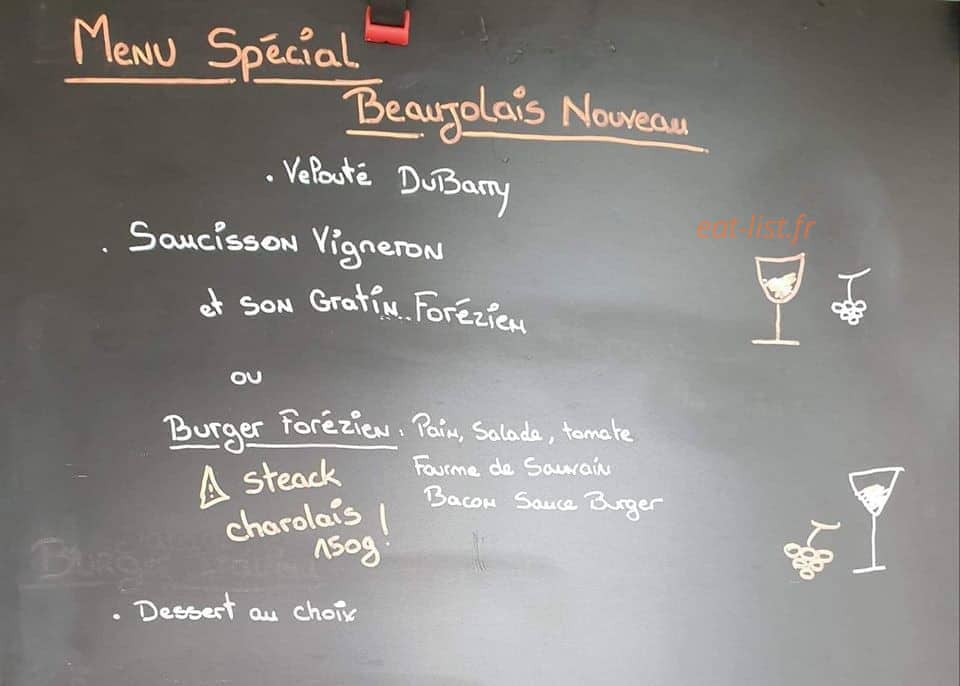 Menu Spécial
Beaujolais Nouveau
. Velouté DuBarry
eat-list.fr
. Saucisson Vigneron
et son Gratin Forézien
ou
Burger Forézien : Pain, Salade, tomate
Fourme de Sauvain
Bacon Sauce Burger
⚠ steack
charolais !
150g
. Dessert au choix